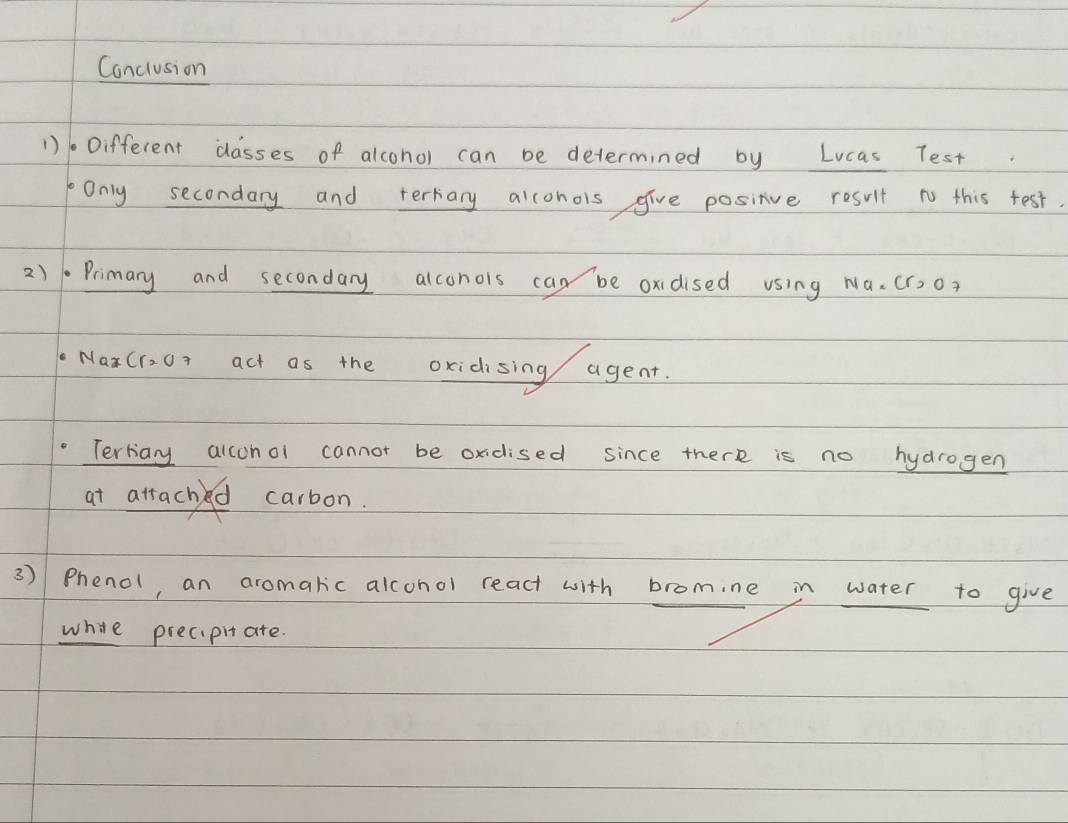 Conclusion
1) • Different classes of alcohol can be determined by Lucas Test .
• Only secondary and tertiary alcohols give positive result to this test.
2) • Primary and secondary alcohols can be oxidised using Na2Cr2O7
• Na2Cr2O7 act as the oxidising agent.
• Tertiary alcohol cannot be oxidised since there is no hydrogen
at attached carbon.
3) Phenol, an aromatic alcohol react with bromine in water to give
white precipitate.